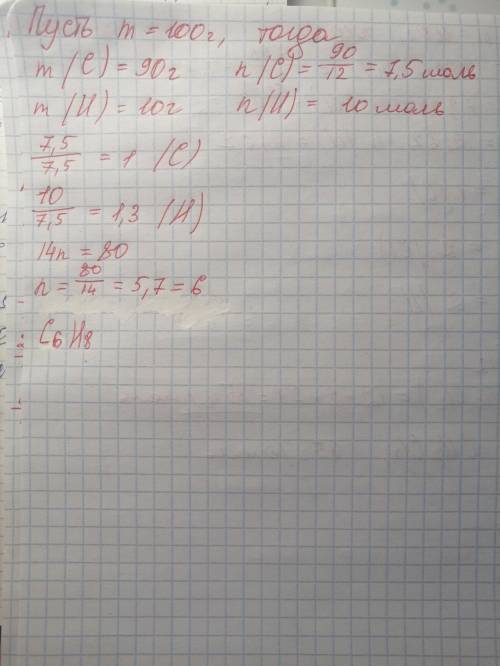 Пусть m = 100г, тогда
m(C) = 90г n(C) = 90/12 = 7,5 моль
m(H) = 10г n(H) = 10 моль
7,5/7,5 = 1 (C)
10/7,5 = 1,3 (H)
14n = 80
n = 80/14 = 5,7 = 6
C6H8